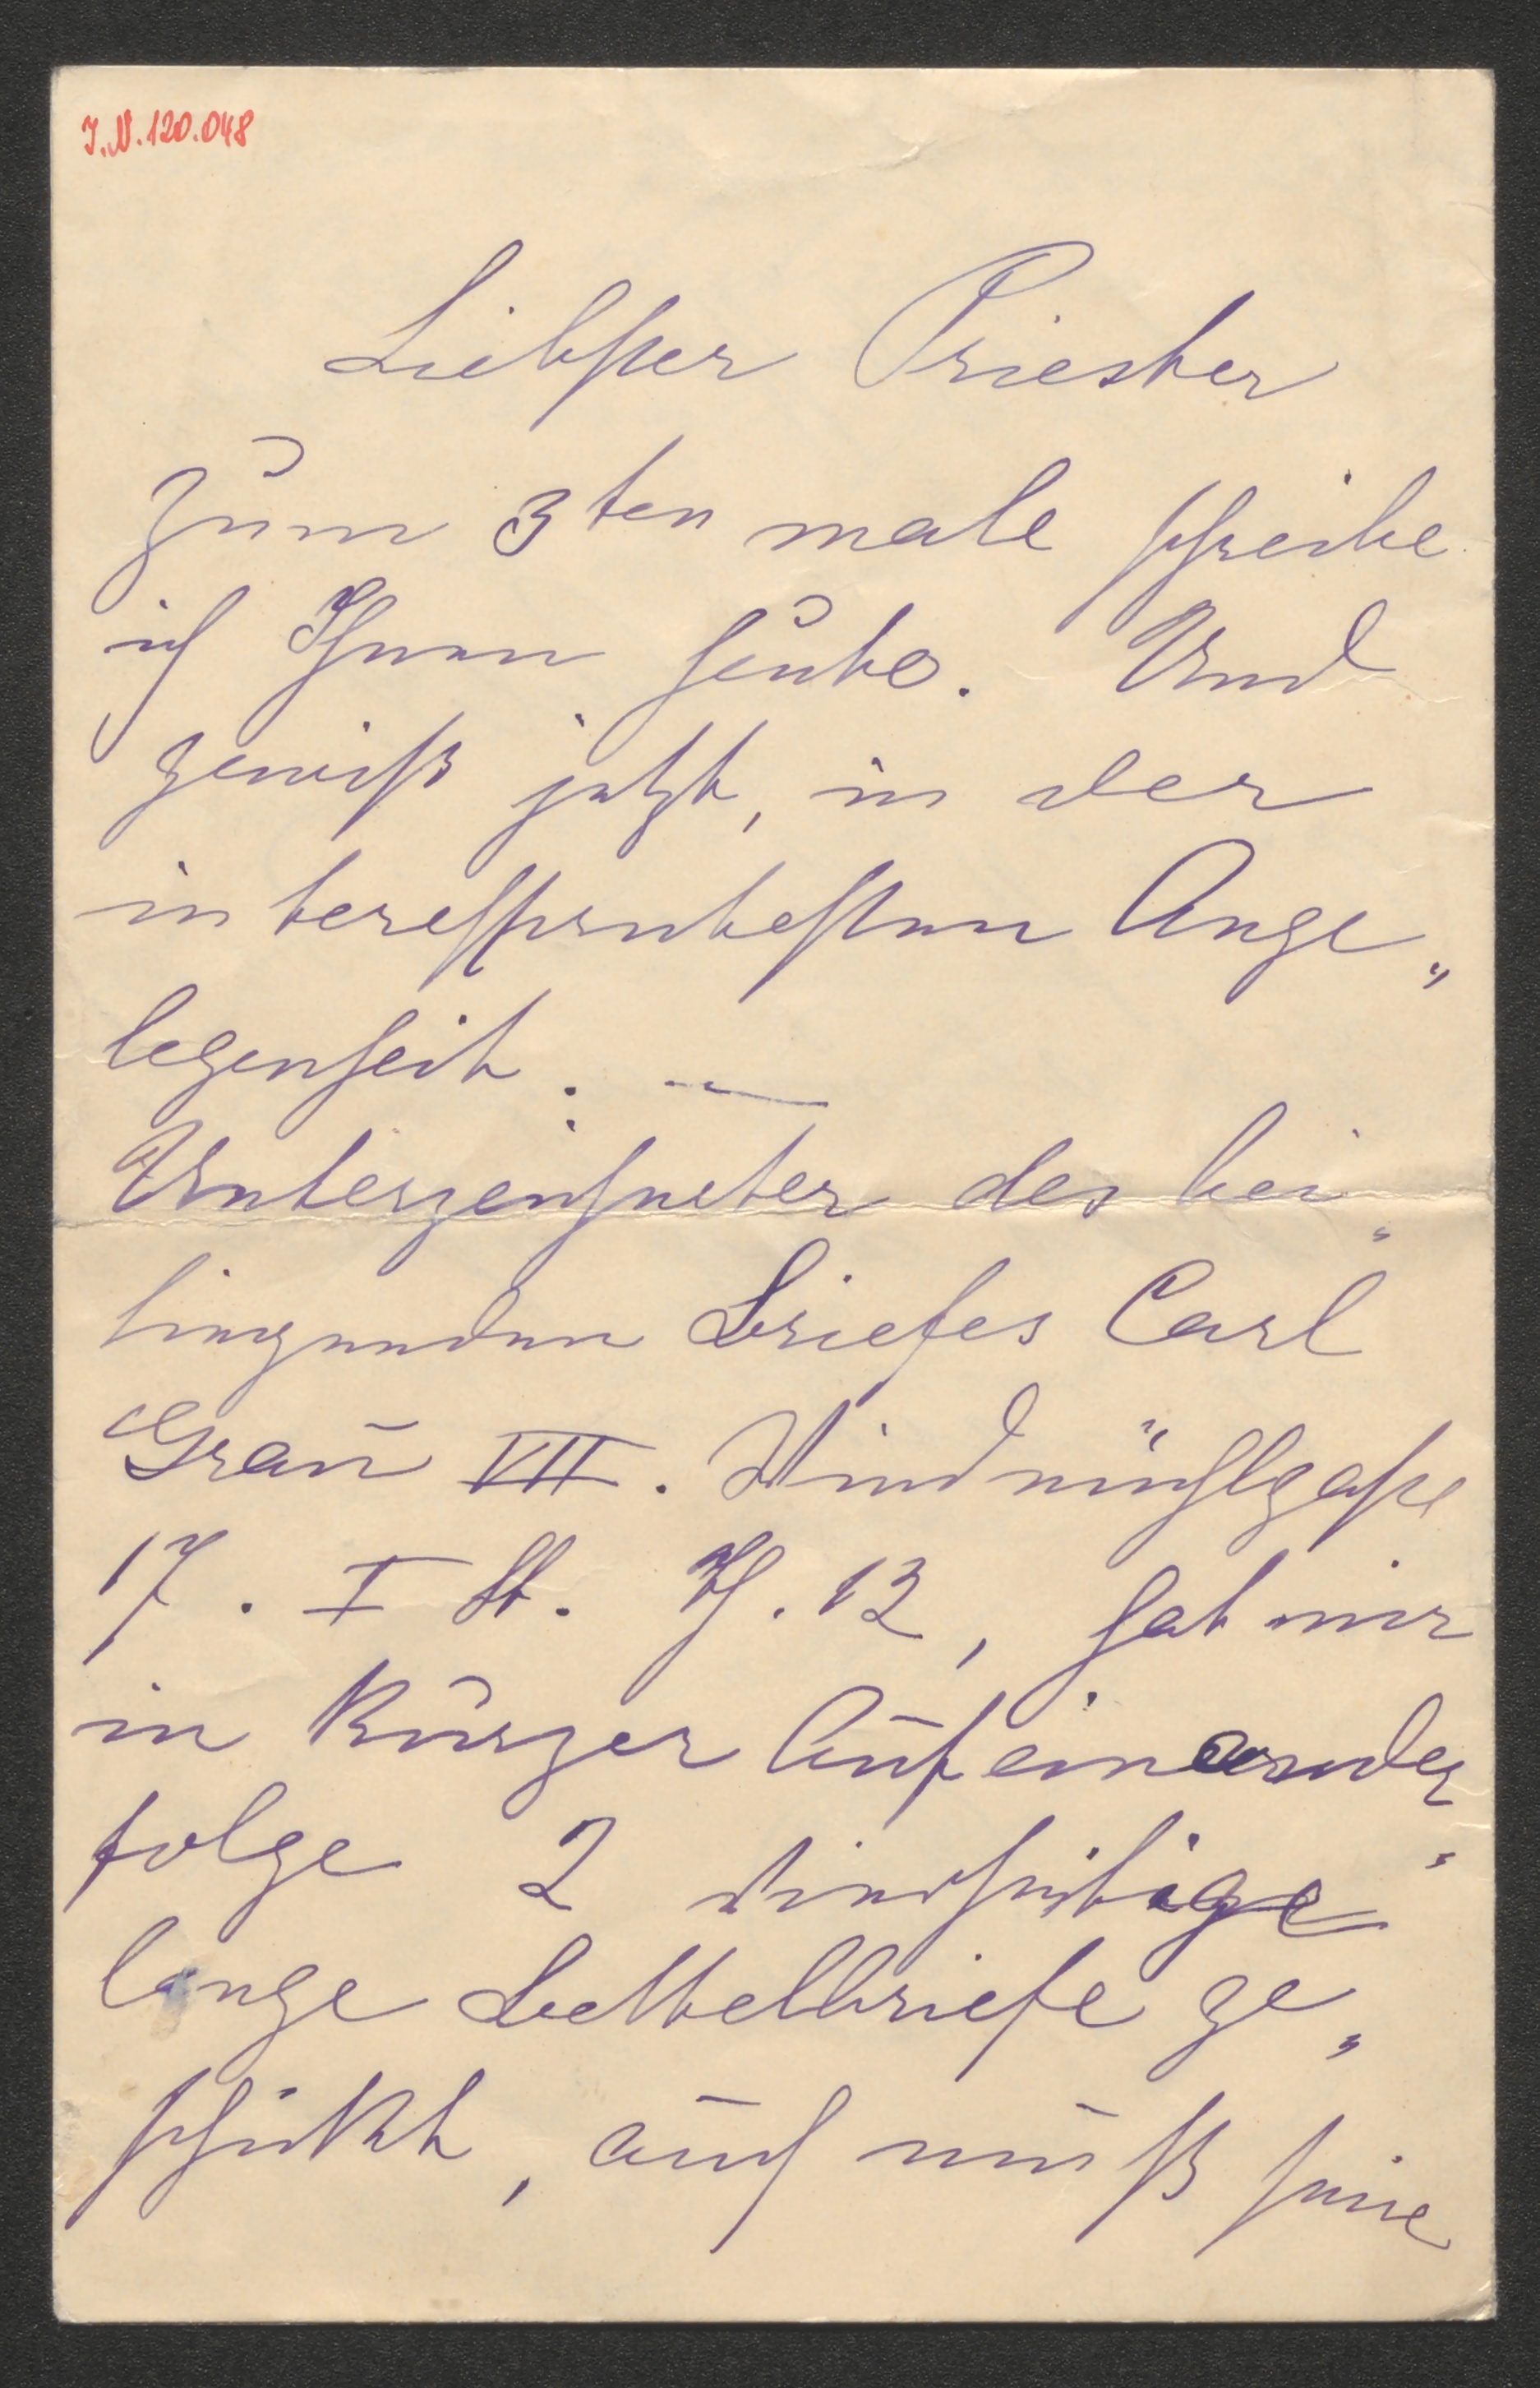 I.N. 120.048
Liebster Priester
Zum 3ten male schreibe
ich Ihnen heute. Und
gewiß jetzt, in der
interessentesten Ange„
legenheit. —
Unterzeichneter des bei„
liegenden Briefes Carl
Grau VII. Windmühlgasse
17. I St. Th. 12, hat mir
in kurzer Aufeinander
folge 2 lange Bettelbriefe ge„
schickt, auch muß seine